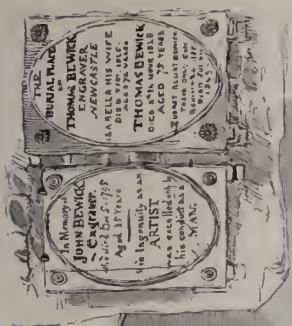 THE
BURIAL PLACE
OF
THOMAS BEWICK
ENGRAVER
NEWCASTLE
ISABELLA HIS WIFE
DIED
AGED 72 YEARS
THOMAS BEWICK
DIED 8TH NOVR 1828
AGED 75 YEARS
ROBERT ELLIOT BEWICK
THEIR ONLY SON
DIED
1849
In Memory of
JOHN BEWICK
Engraver.
who died Dec 5. 1795
Aged 35 Years
his Ingenuity as an
ARTIST
was excelled only by
his conduct as a
MAN.